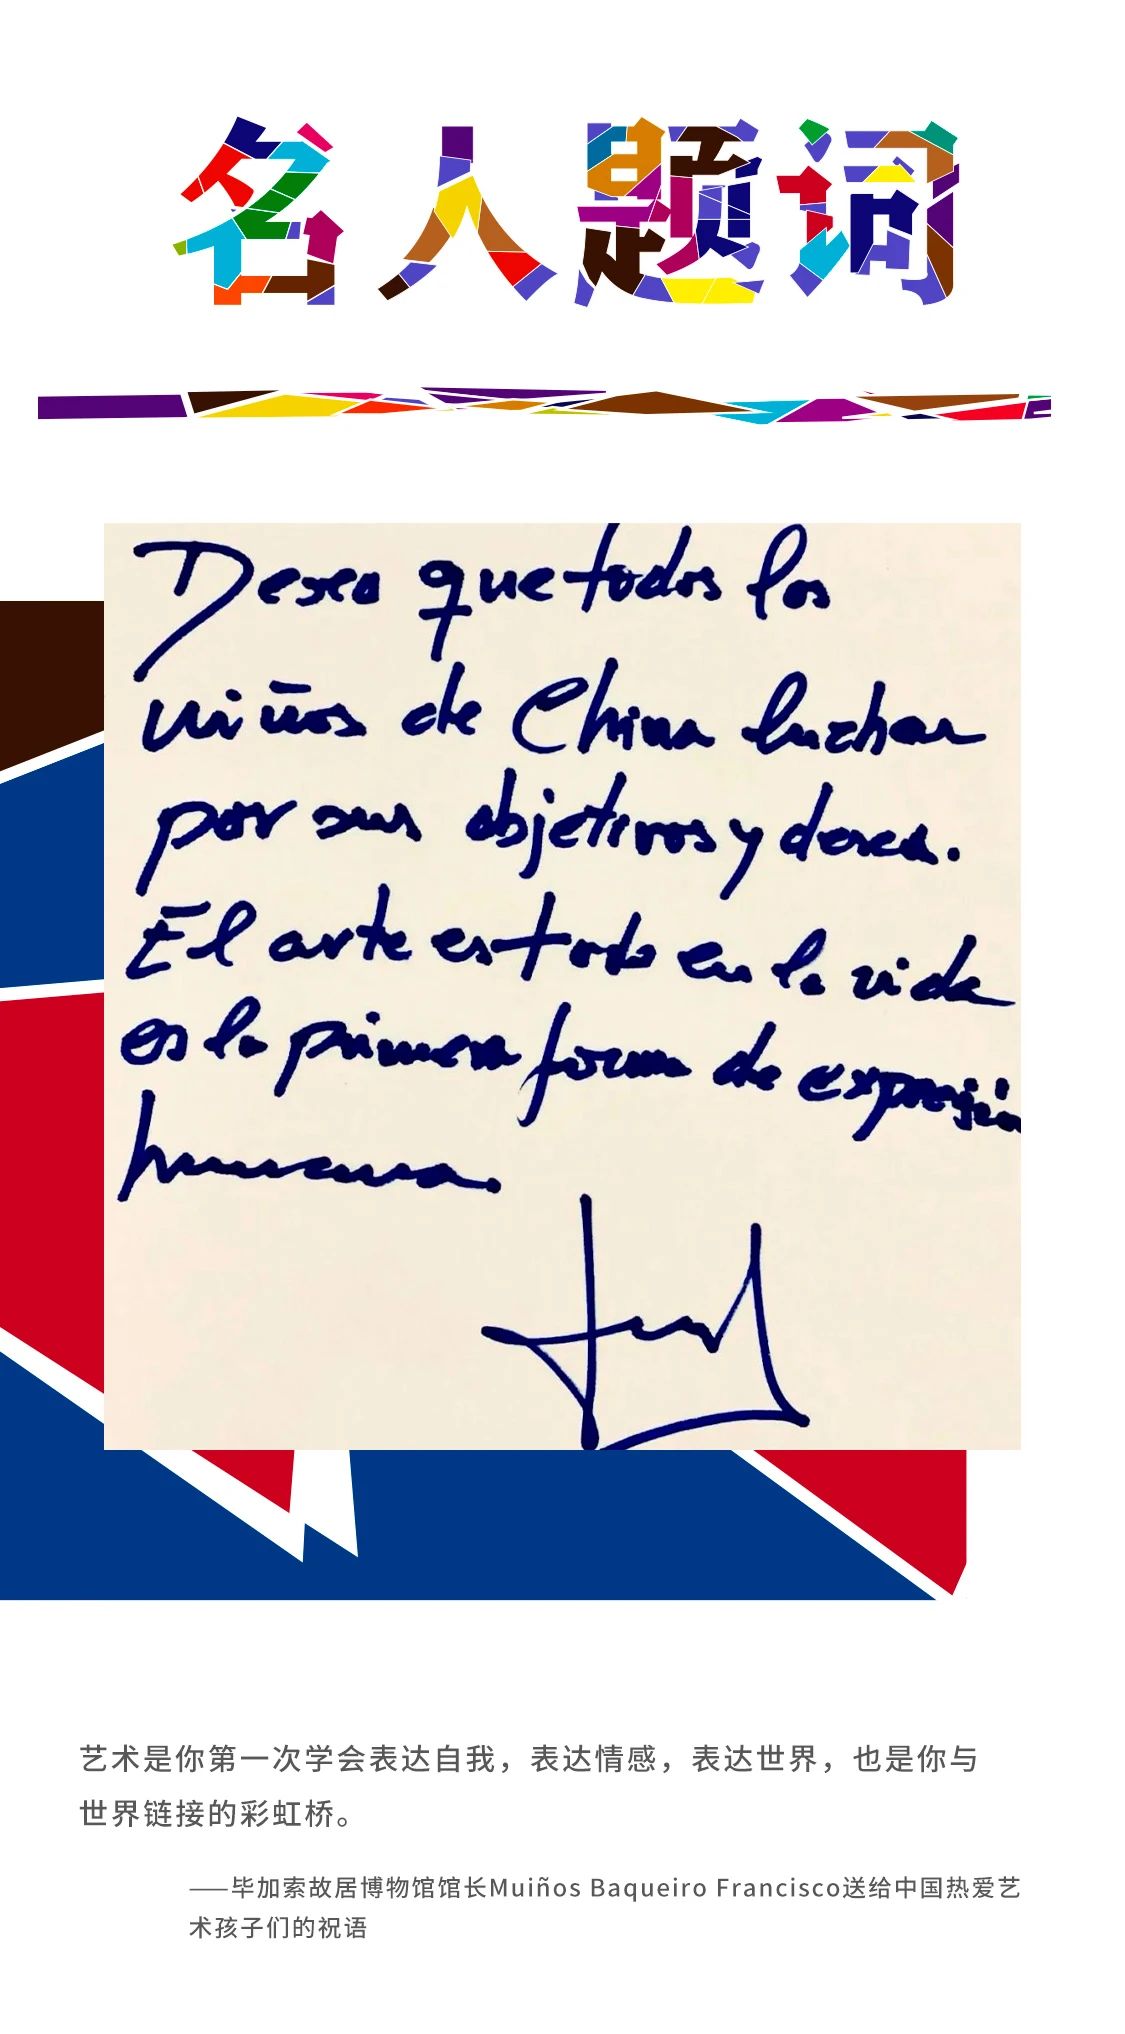 名人题词
Deseo que todos los
niños de China luchar
por sus objetivos y deseos.
El arte es todo en la vida
es la primera forma de expresión
humana.
艺术是你第一次学会表达自我，表达情感，表达世界，也是你与
世界链接的彩虹桥。
——毕加索故居博物馆馆长Muiños Baqueiro Francisco送给中国热爱艺
术孩子们的祝语